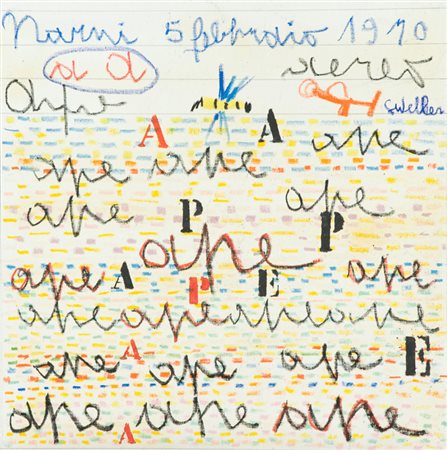 Narni 5 febbraio 1970
a a aereo
ape
A A ape
ape ape
ape P ape
ape P
ape A P E ape
ape ape ape ape
ape A ape ape E
ape A ape ape